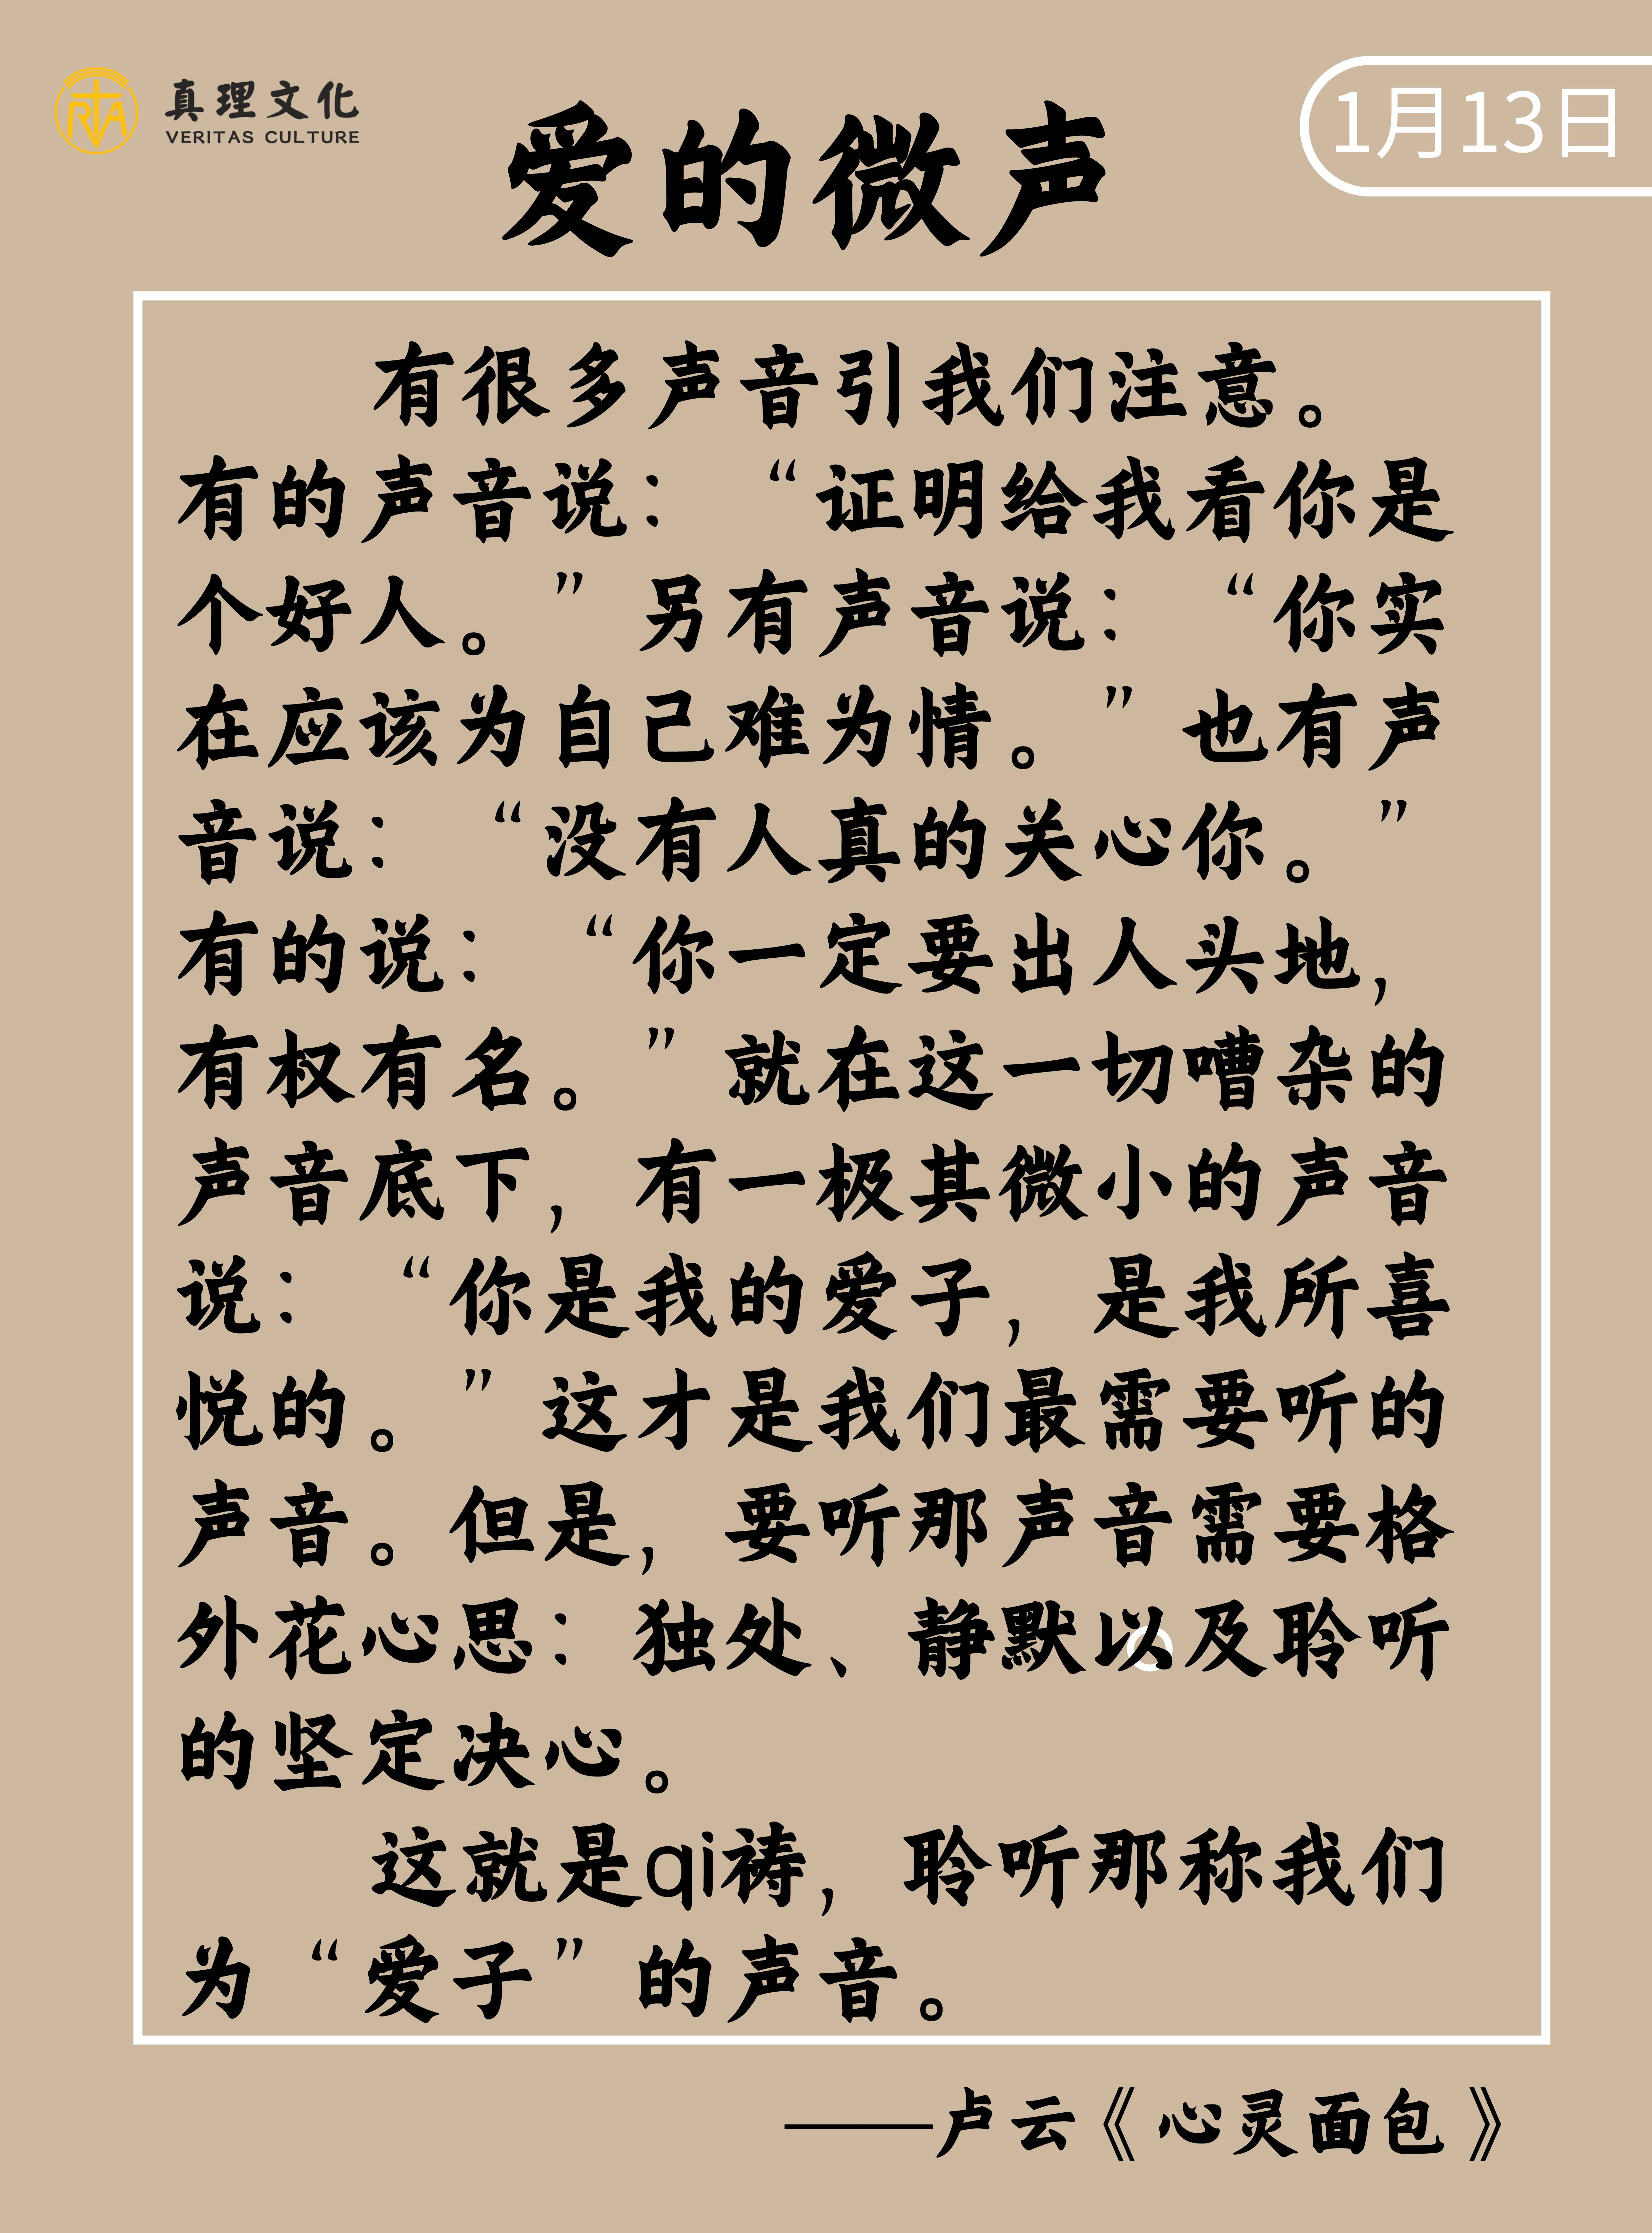 真理文化
VERITAS CULTURE
1月13日
爱的微声
有很多声音引我们注意。
有的声音说：“证明给我看你是
个好人。”另有声音说：“你实
在应该为自己难为情。”也有声
音说：“没有人真的关心你。”
有的说：“你一定要出人头地，
有权有名。”就在这一切嘈杂的
声音底下，有一极其微小的声音
说：“你是我的爱子，是我所喜
悦的。”这才是我们最需要听的
声音。但是，要听那声音需要格
外花心思：独处、静默以及聆听
的坚定决心。
这就是qi祷，聆听那称我们
为“爱子”的声音。
——卢云《心灵面包》